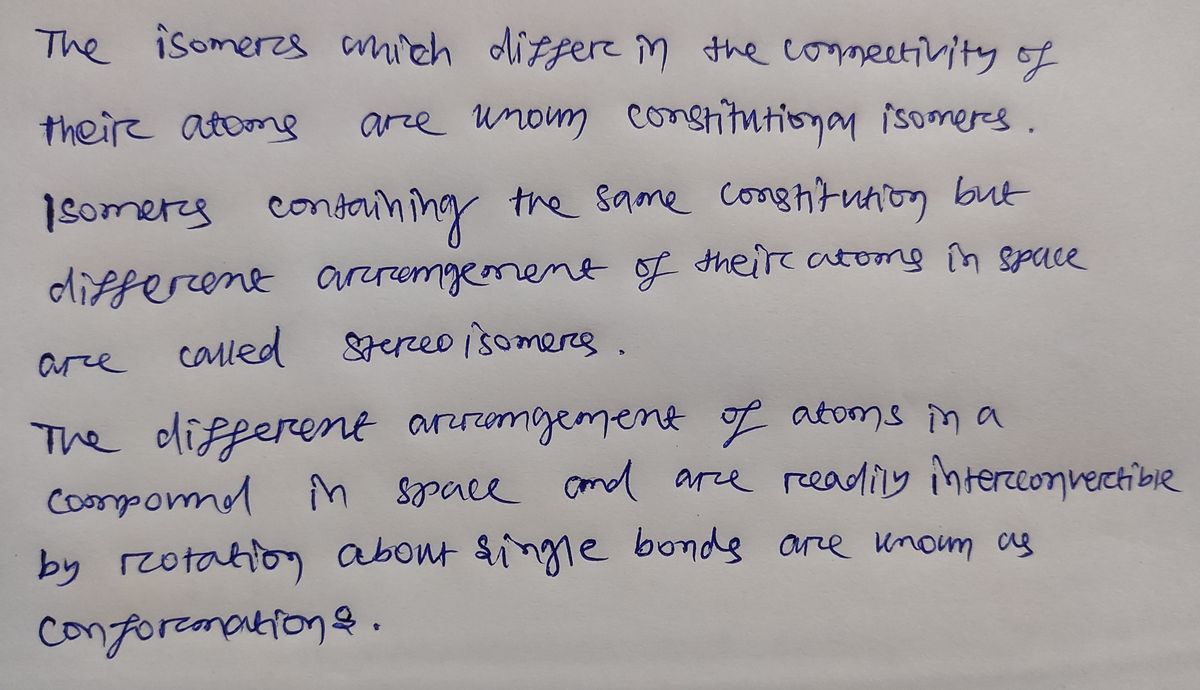 The isomers which differ in the connectivity of
their atoms are known constitutional isomers.
Isomers containing the same constitution but
different arrangement of their atoms in space
are called stereoisomers.
The different arrangement of atoms in a
compound in space and are readily interconvertible
by rotation about single bonds are known as
conformations.